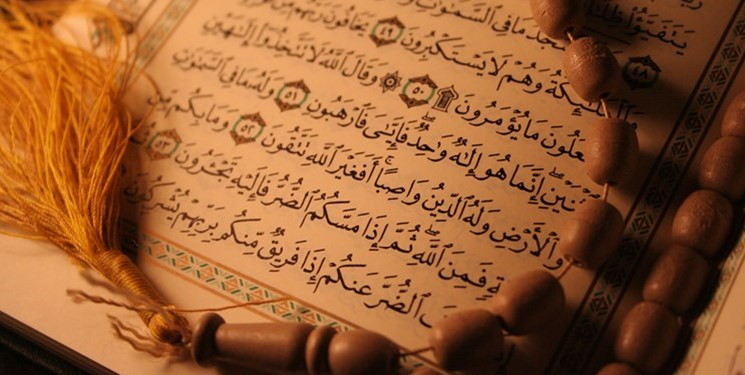 يَتَفَيَّؤُا۟ ظِلَٰلُهُ
٤٨ يَسْجُدُ مَا فِى ٱلسَّمَٰوَٰتِ
ٱلْمَلَٰٓئِكَةُ وَهُمْ لَا يَسْتَكْبِرُونَ ٤٩ يَخَافُونَ رَبَّهُم مِّن
عَلُونَ مَا يُؤْمَرُونَ ۩ ٥٠ ۞ وَقَالَ ٱللَّهُ لَا تَتَّخِذُوٓا۟ إِلَٰهَيْنِ
ثْنَيْنِ ۖ إِنَّمَا هُوَ إِلَٰهٌ وَٰحِدٌ ۖ فَإِيَّٰىَ فَٱرْهَبُونِ ٥١ وَلَهُۥ مَا فِى ٱلسَّمَٰوَٰتِ
وَٱلْأَرْضِ وَلَهُ ٱلدِّينُ وَاصِبًا ۚ أَفَغَيْرَ ٱللَّهِ تَتَّقُونَ ٥٢ وَمَا بِكُم مِّن
ةٍ فَمِنَ ٱللَّهِ ۖ ثُمَّ إِذَا مَسَّكُمُ ٱلضُّرُّ فَإِلَيْهِ تَجْـَٔرُونَ ٥٣
فَ ٱلضُّرَّ عَنكُمْ إِذَا فَرِيقٌ مِّنكُم بِرَبِّهِمْ يُشْرِكُونَ